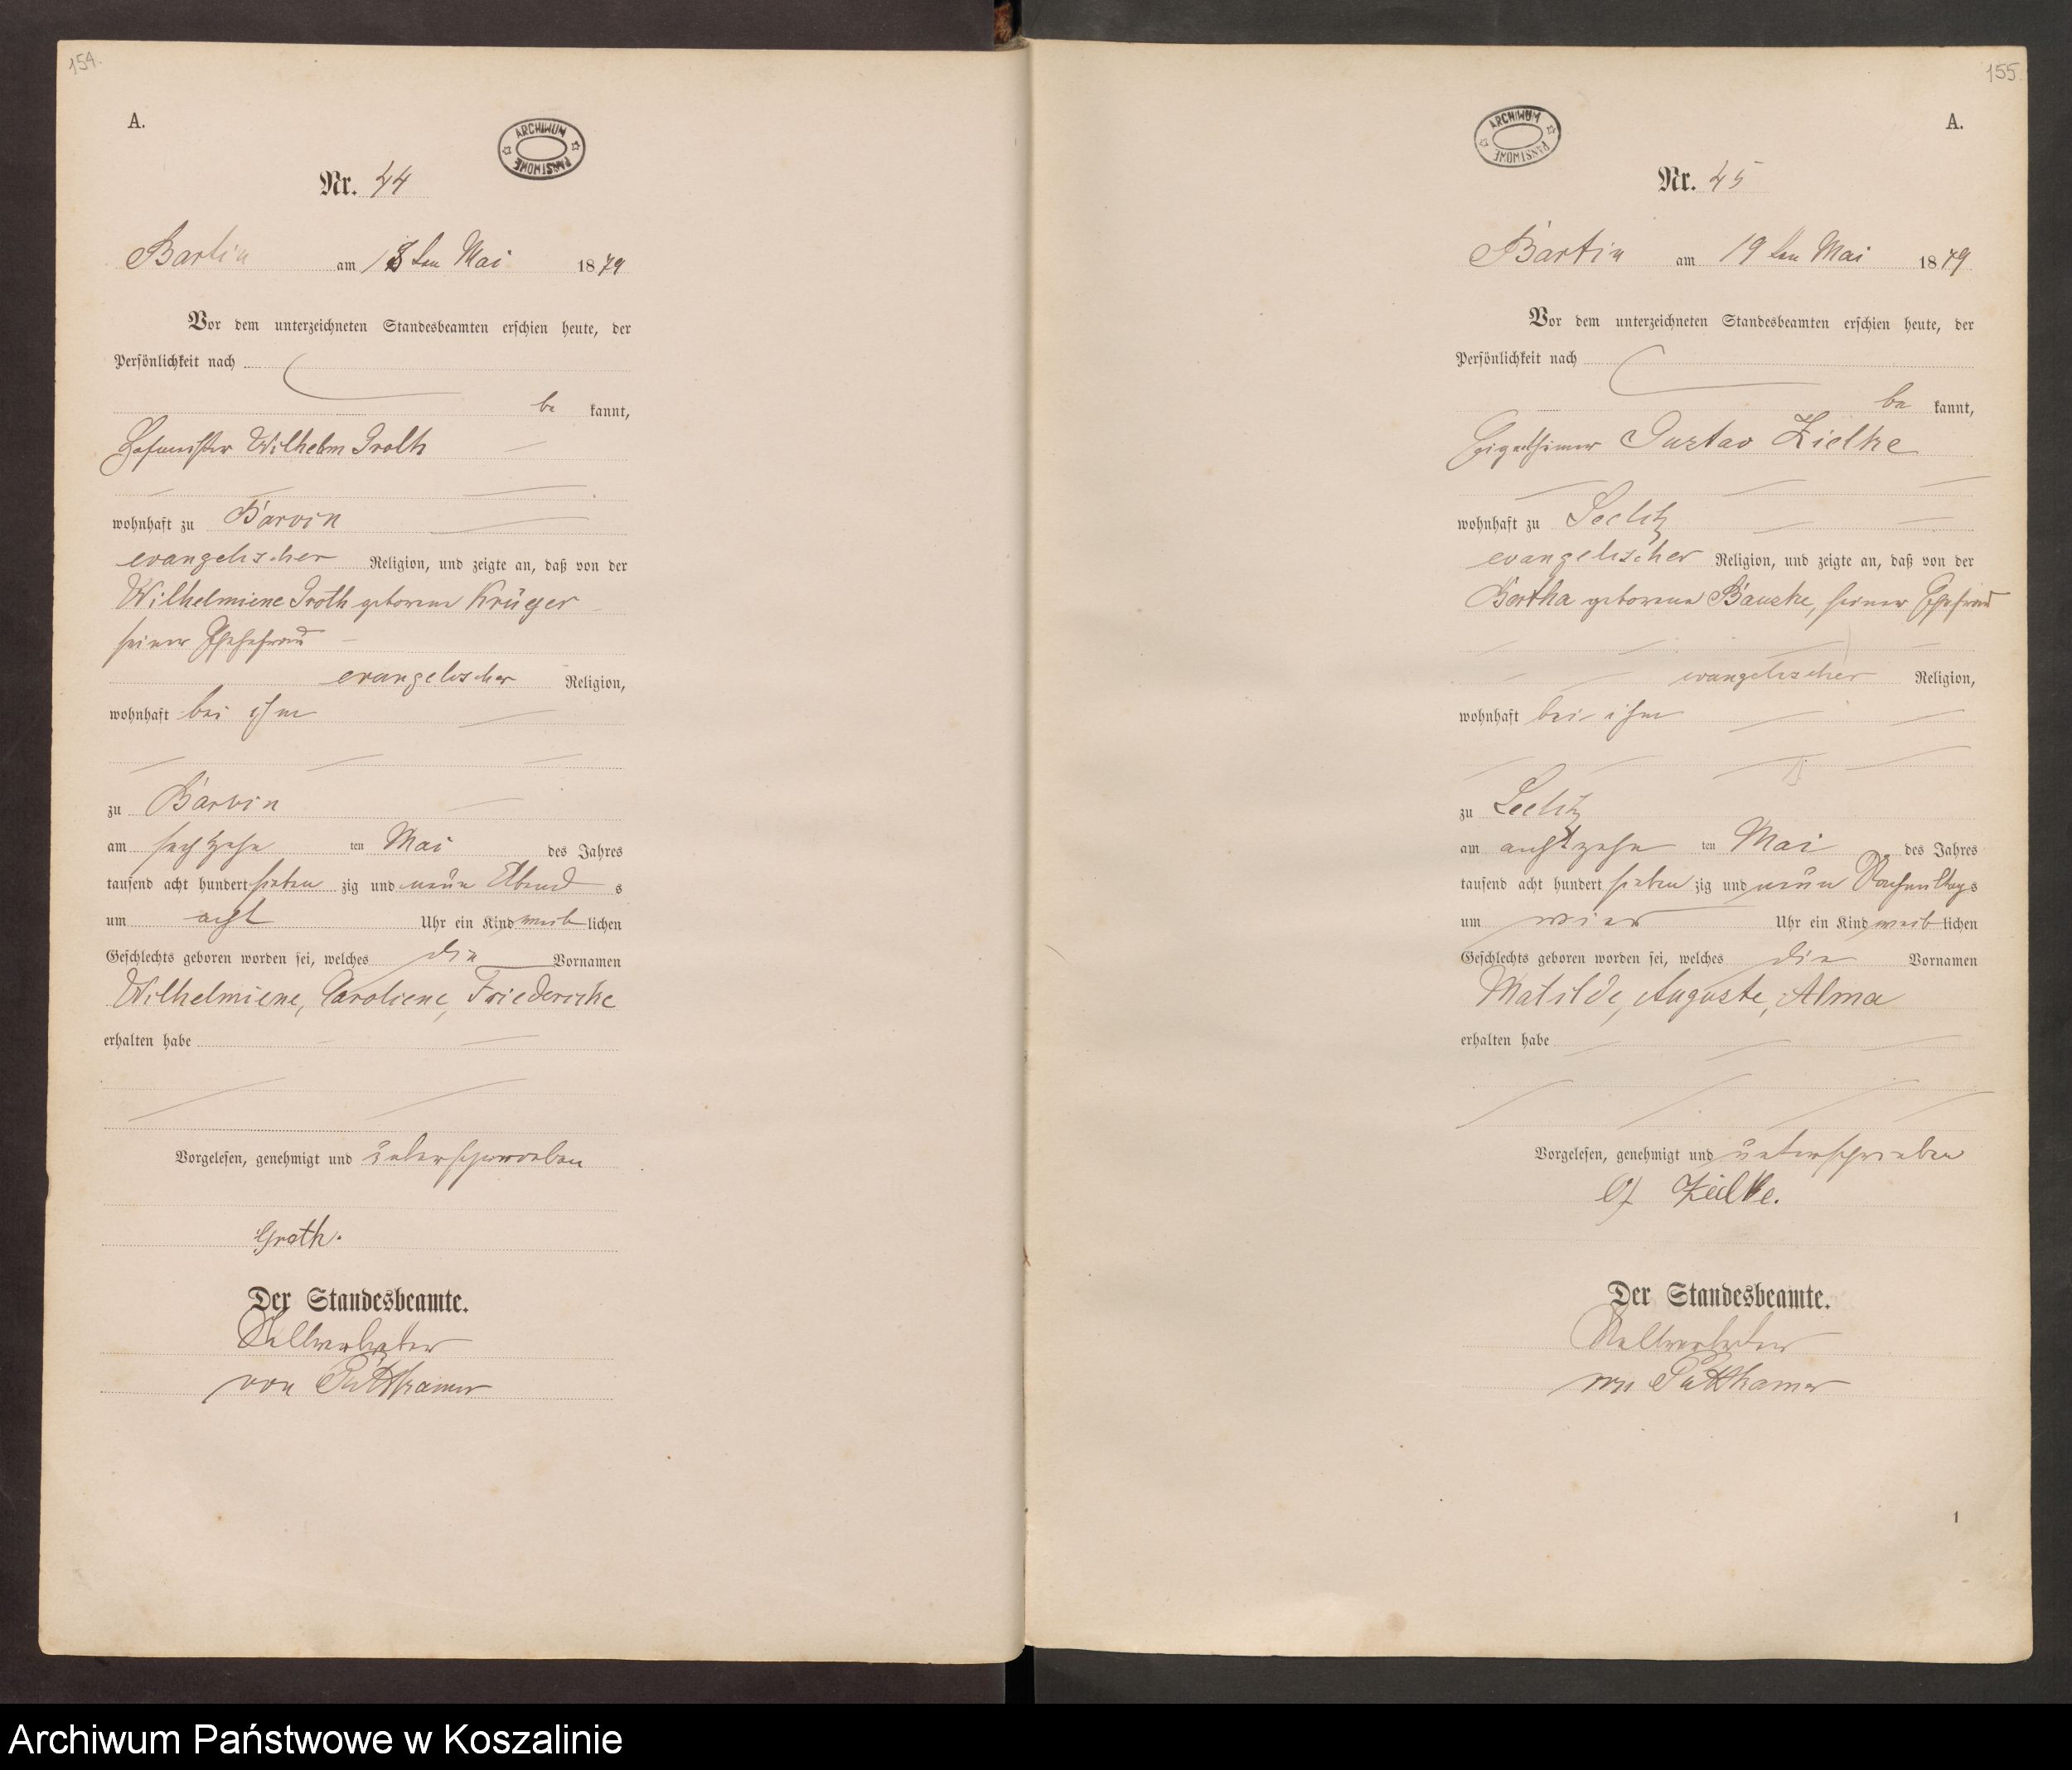 154.
A.
ARCHIWUM PAŃSTWOWE
Nr. 44
Bartin am 18ten Mai 1879
Vor dem unterzeichneten Standesbeamten erschien heute, der
Persönlichkeit nach
be kannt,
Hofmeister Wilhelm Groth
wohnhaft zu Barvin
evangelischer Religion, und zeigte an, daß von der
Wilhelmiene Groth geborene Krüger
seiner Ehefrau
evangelischer Religion,
wohnhaft bei ihm
zu Barvin
am sechzehn ten Mai des Jahres
tausend acht hundert sieben zig und neun Abend s
um acht Uhr ein Kind weib lichen
Geschlechts geboren worden sei, welches die Vornamen
Wilhelmiene, Caroliene, Friedericke
erhalten habe
Vorgelesen, genehmigt und unterschrieben
Groth.
Der Standesbeamte.
Stellvertreter
von Puttkamer
155.
A.
ARCHIWUM PAŃSTWOWE
Nr. 45
Bartin am 19ten Mai 1879
Vor dem unterzeichneten Standesbeamten erschien heute, der
Persönlichkeit nach
be kannt,
Eigenthümer Gustav Zielke
wohnhaft zu Seelitz
evangelischer Religion, und zeigte an, daß von der
Bertha geborene Bauske, seiner Ehefrau
evangelischer Religion,
wohnhaft bei ihm
zu Seelitz
am achtzehn ten Mai des Jahres
tausend acht hundert sieben zig und neun Nachmittags
um vier Uhr ein Kind weib lichen
Geschlechts geboren worden sei, welches die Vornamen
Matilde, Auguste, Alma
erhalten habe
Vorgelesen, genehmigt und unterschrieben
G Zielke.
Der Standesbeamte.
Stellvertreter
von Puttkamer
1
Archiwum Państwowe w Koszalinie